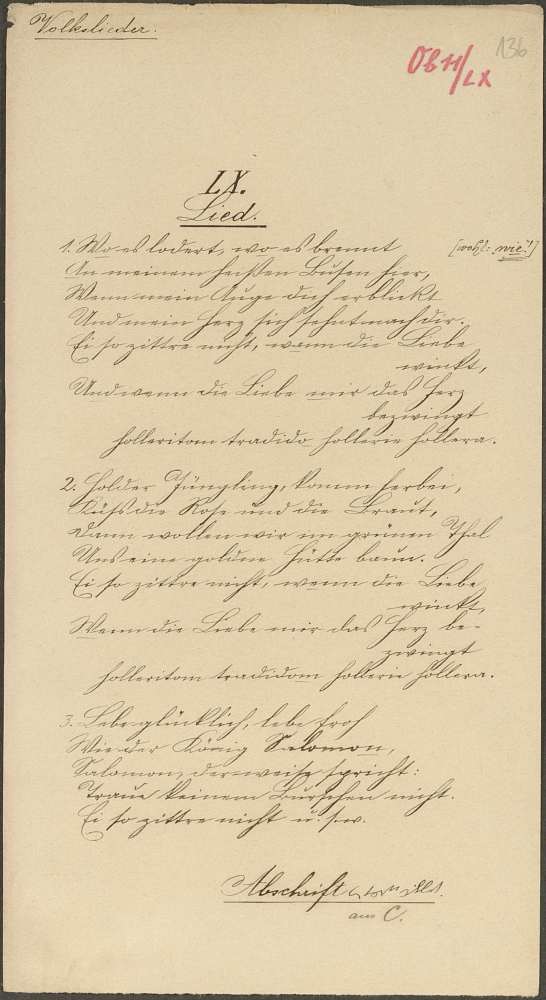 Volkslieder.
OB 11/LX
136
LX.
Lied.
1. Wo es lodert, wo es brennt [wohl: „wie“!]
In meinem heißen Busen hier,
Wenn mein Auge dich erblickt
Und mein Herz sich sehnt nach dir.
Ei so zittre nicht, wann die Liebe
winkt,
Und wenn die Liebe mir das Herz
bezwingt
holleritom tradido hollerie hollera.
2. Holder Jüngling, komm herbei,
Küß die Rose und die Braut,
Dann wollen wir im grünen Thal
Uns eine goldne Hütte baun.
Ei so zittre nicht, wenn die Liebe
winkt,
Wenn die Liebe mir das Herz be-
zwingt
holleritom tradidom hollerie hollera.
3. Lebe glücklich, lebe froh
Wie der König Salomon,
Salomon, der weise spricht:
Traue keinem Burschen nicht.
Ei so zittre nicht u. s. w.
Abschrift
aus C.